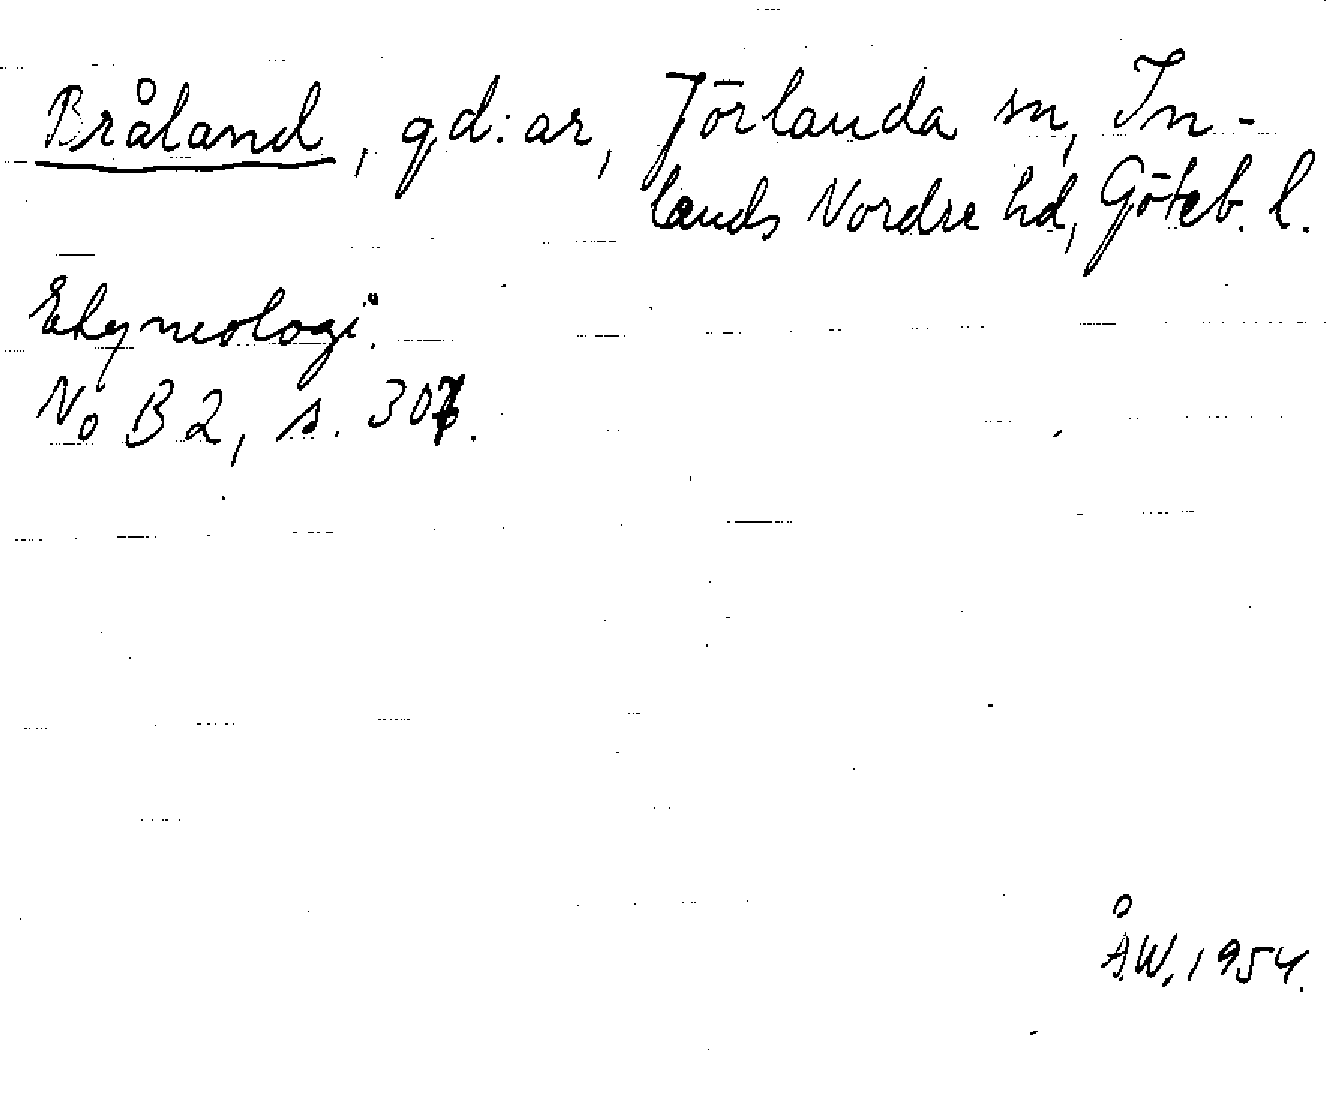 Bråland, gd:ar, Jörlanda sn, In-
lands Nordre hd, Göteb. l.
Etymologi.
NoB 2, s.
ÅW, 1954.